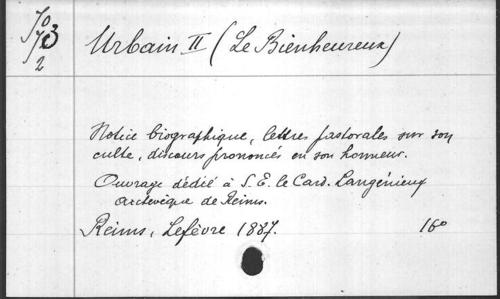 Urbain II (Le Bienheureux)
Notice biographique, lettres pastorales sur son
culte, discours prononcés en son honneur.
Ouvrage dédié à S. E. le Card. Langénieux
archevêque de Reims.
Reims, Lefèvre 1887. 16°